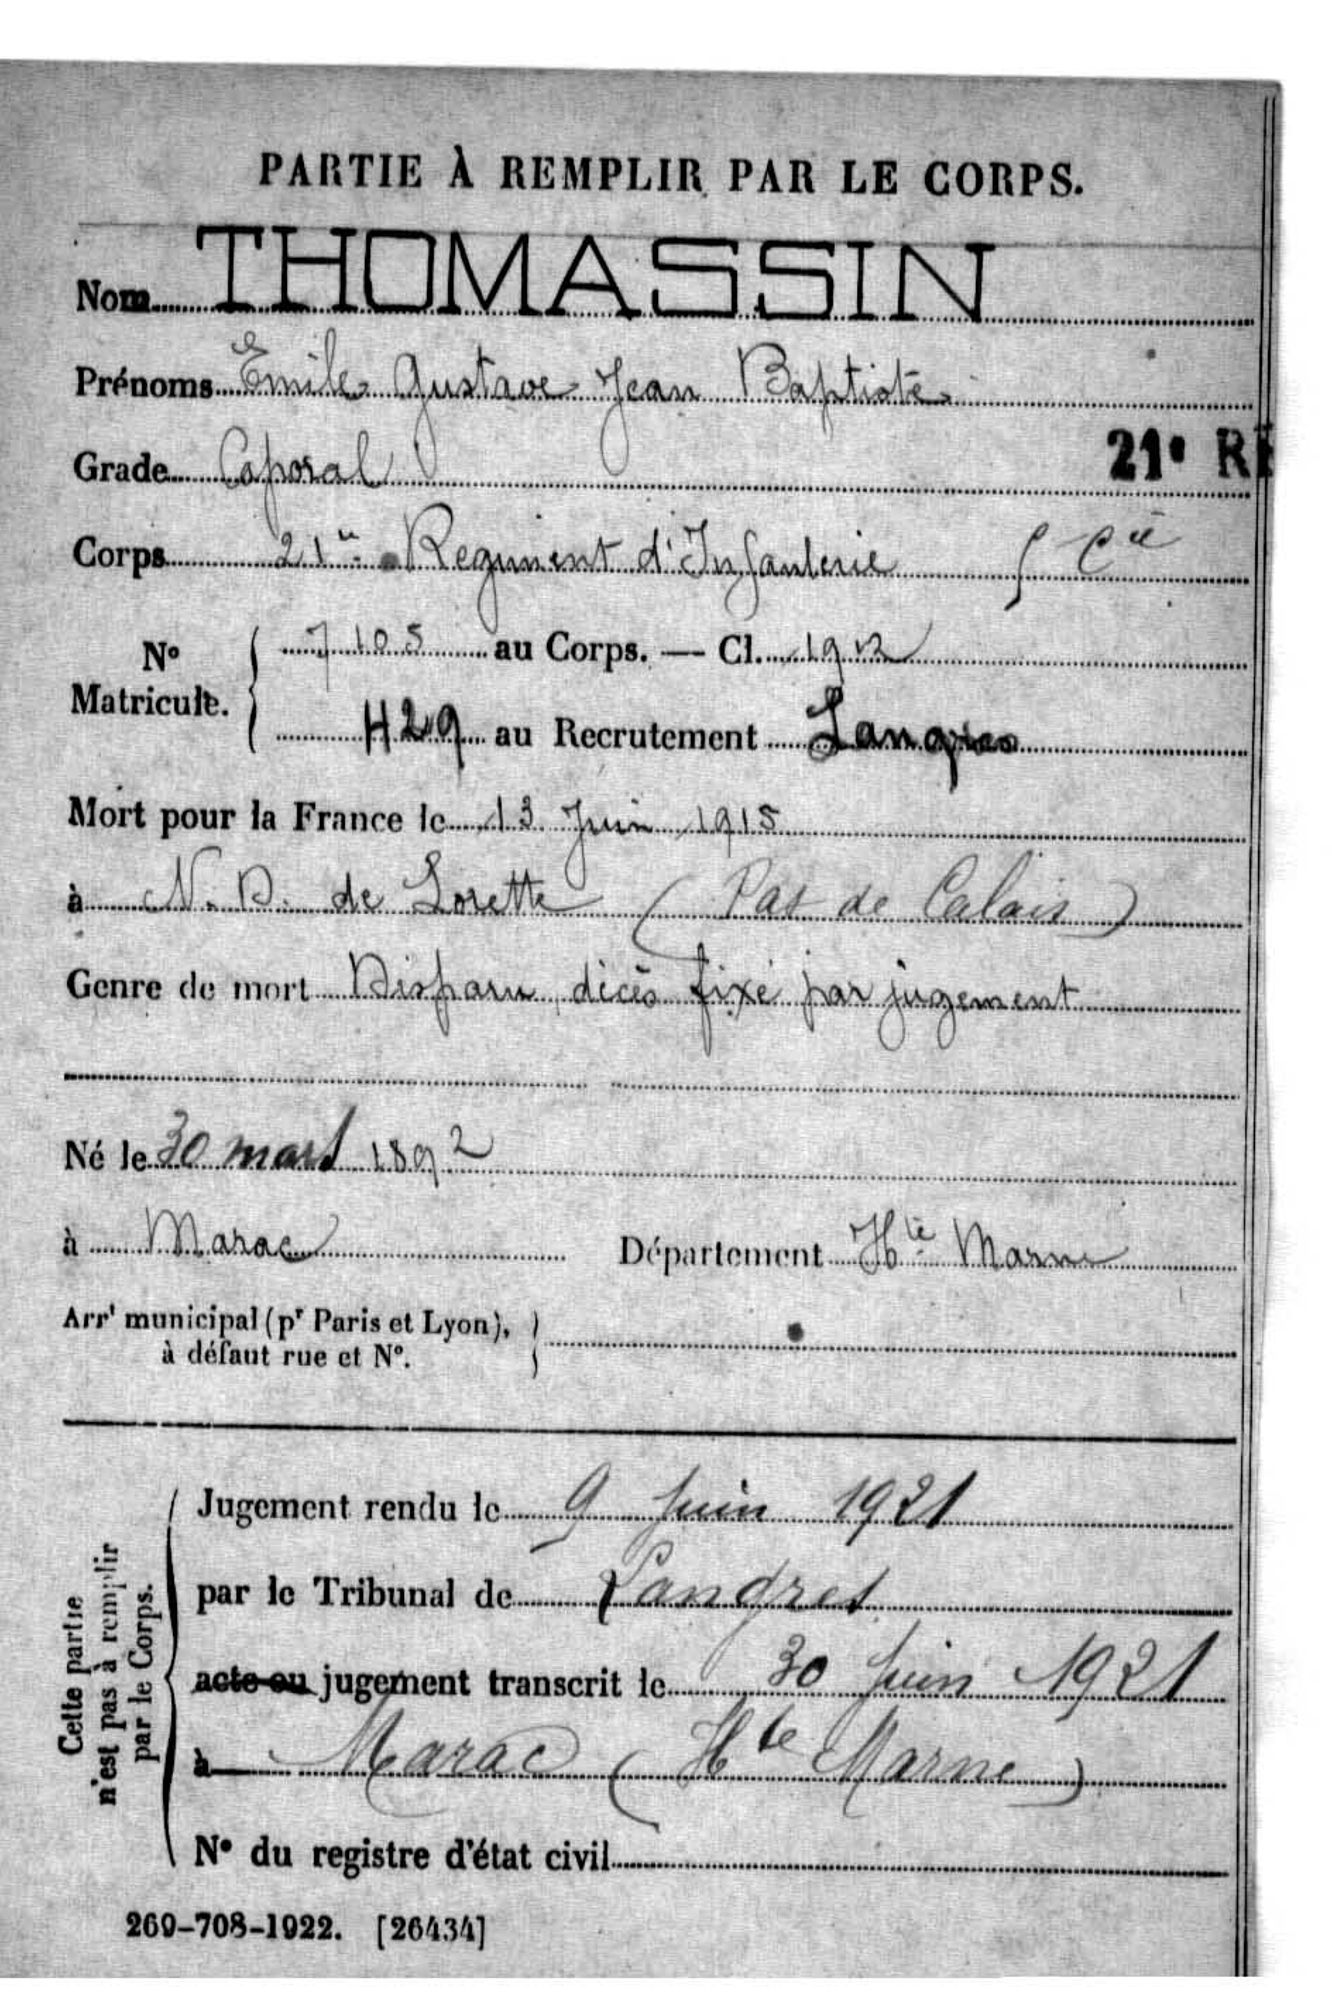 PARTIE À REMPLIR PAR LE CORPS.
Nom THOMASSIN
Prénoms Emile Gustave Jean Baptiste
Grade Caporal
21e RI
Corps 21e Regiment d'Infanterie Cie
No Matricule. 7105 au Corps. — Cl. 1912
429 au Recrutement Langres
Mort pour la France le 13 Juin 1915
à N. D. de Lorette (Pas de Calais)
Genre de mort Disparu, décès fixé par jugement
Né le 30 mars 1892
à Marac Département Hte Marne
Arrt municipal (pr Paris et Lyon),
à défaut rue et No.
Cette partie
n'est pas à remplir
par le Corps.
Jugement rendu le 9 Juin 1921
par le Tribunal de Langres
acte ou jugement transcrit le 30 Juin 1921
à Marac (Hte Marne)
No du registre d'état civil
269-708-1922. [26434]